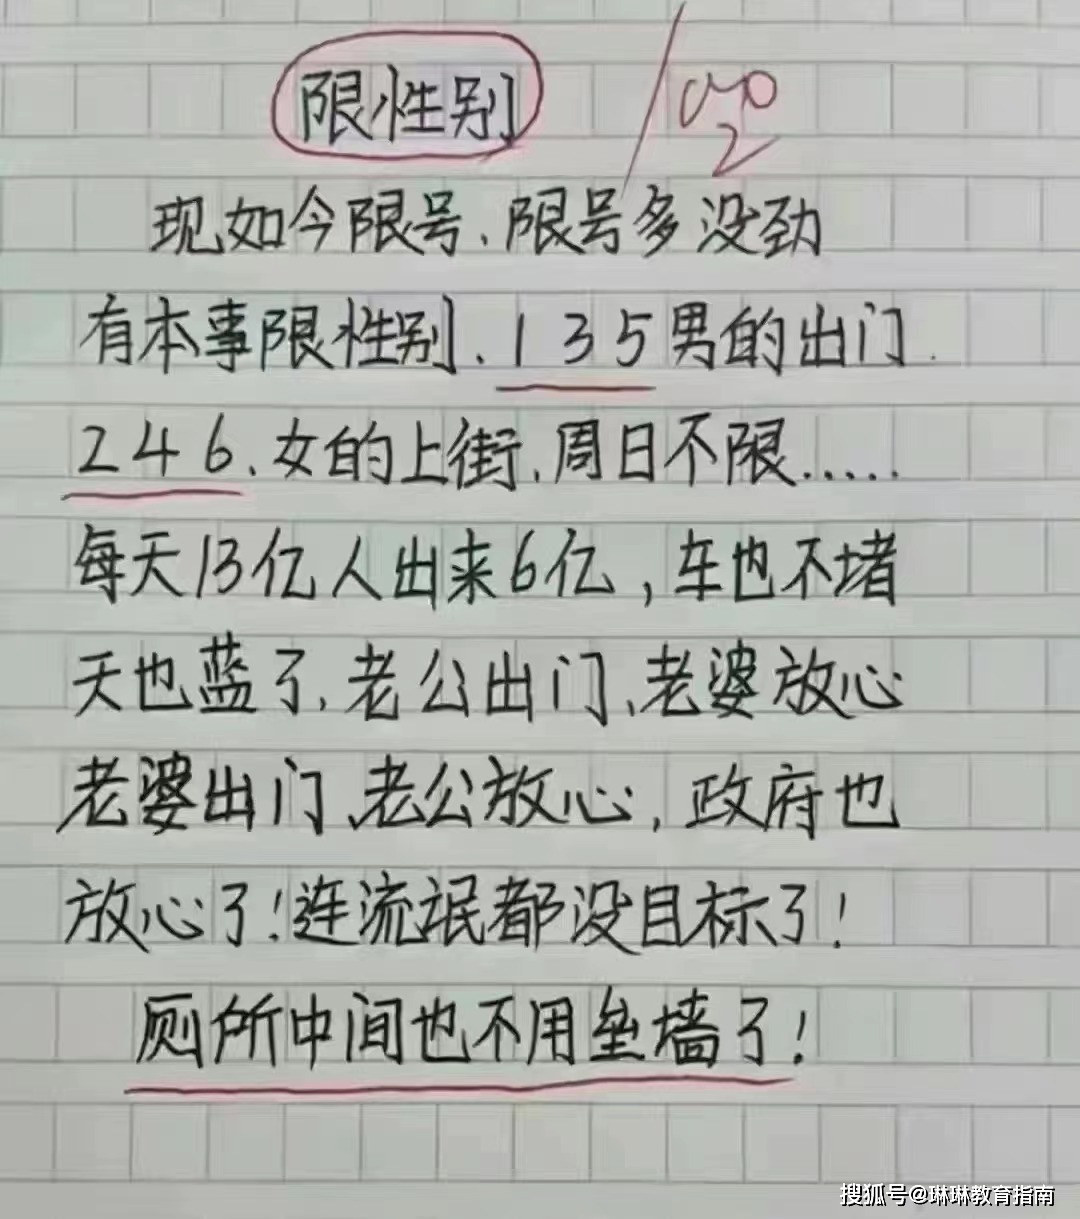 限性别
现如今限号、限号多没劲
有本事限性别、135男的出门.
246、女的上街、周日不限……
每天13亿人出来6亿，车也不堵
天也蓝了、老公出门、老婆放心
老婆出门、老公放心，政府也
放心了！连流氓都没目标了！
厕所中间也不用垒墙了！
搜狐号@琳琳教育指南